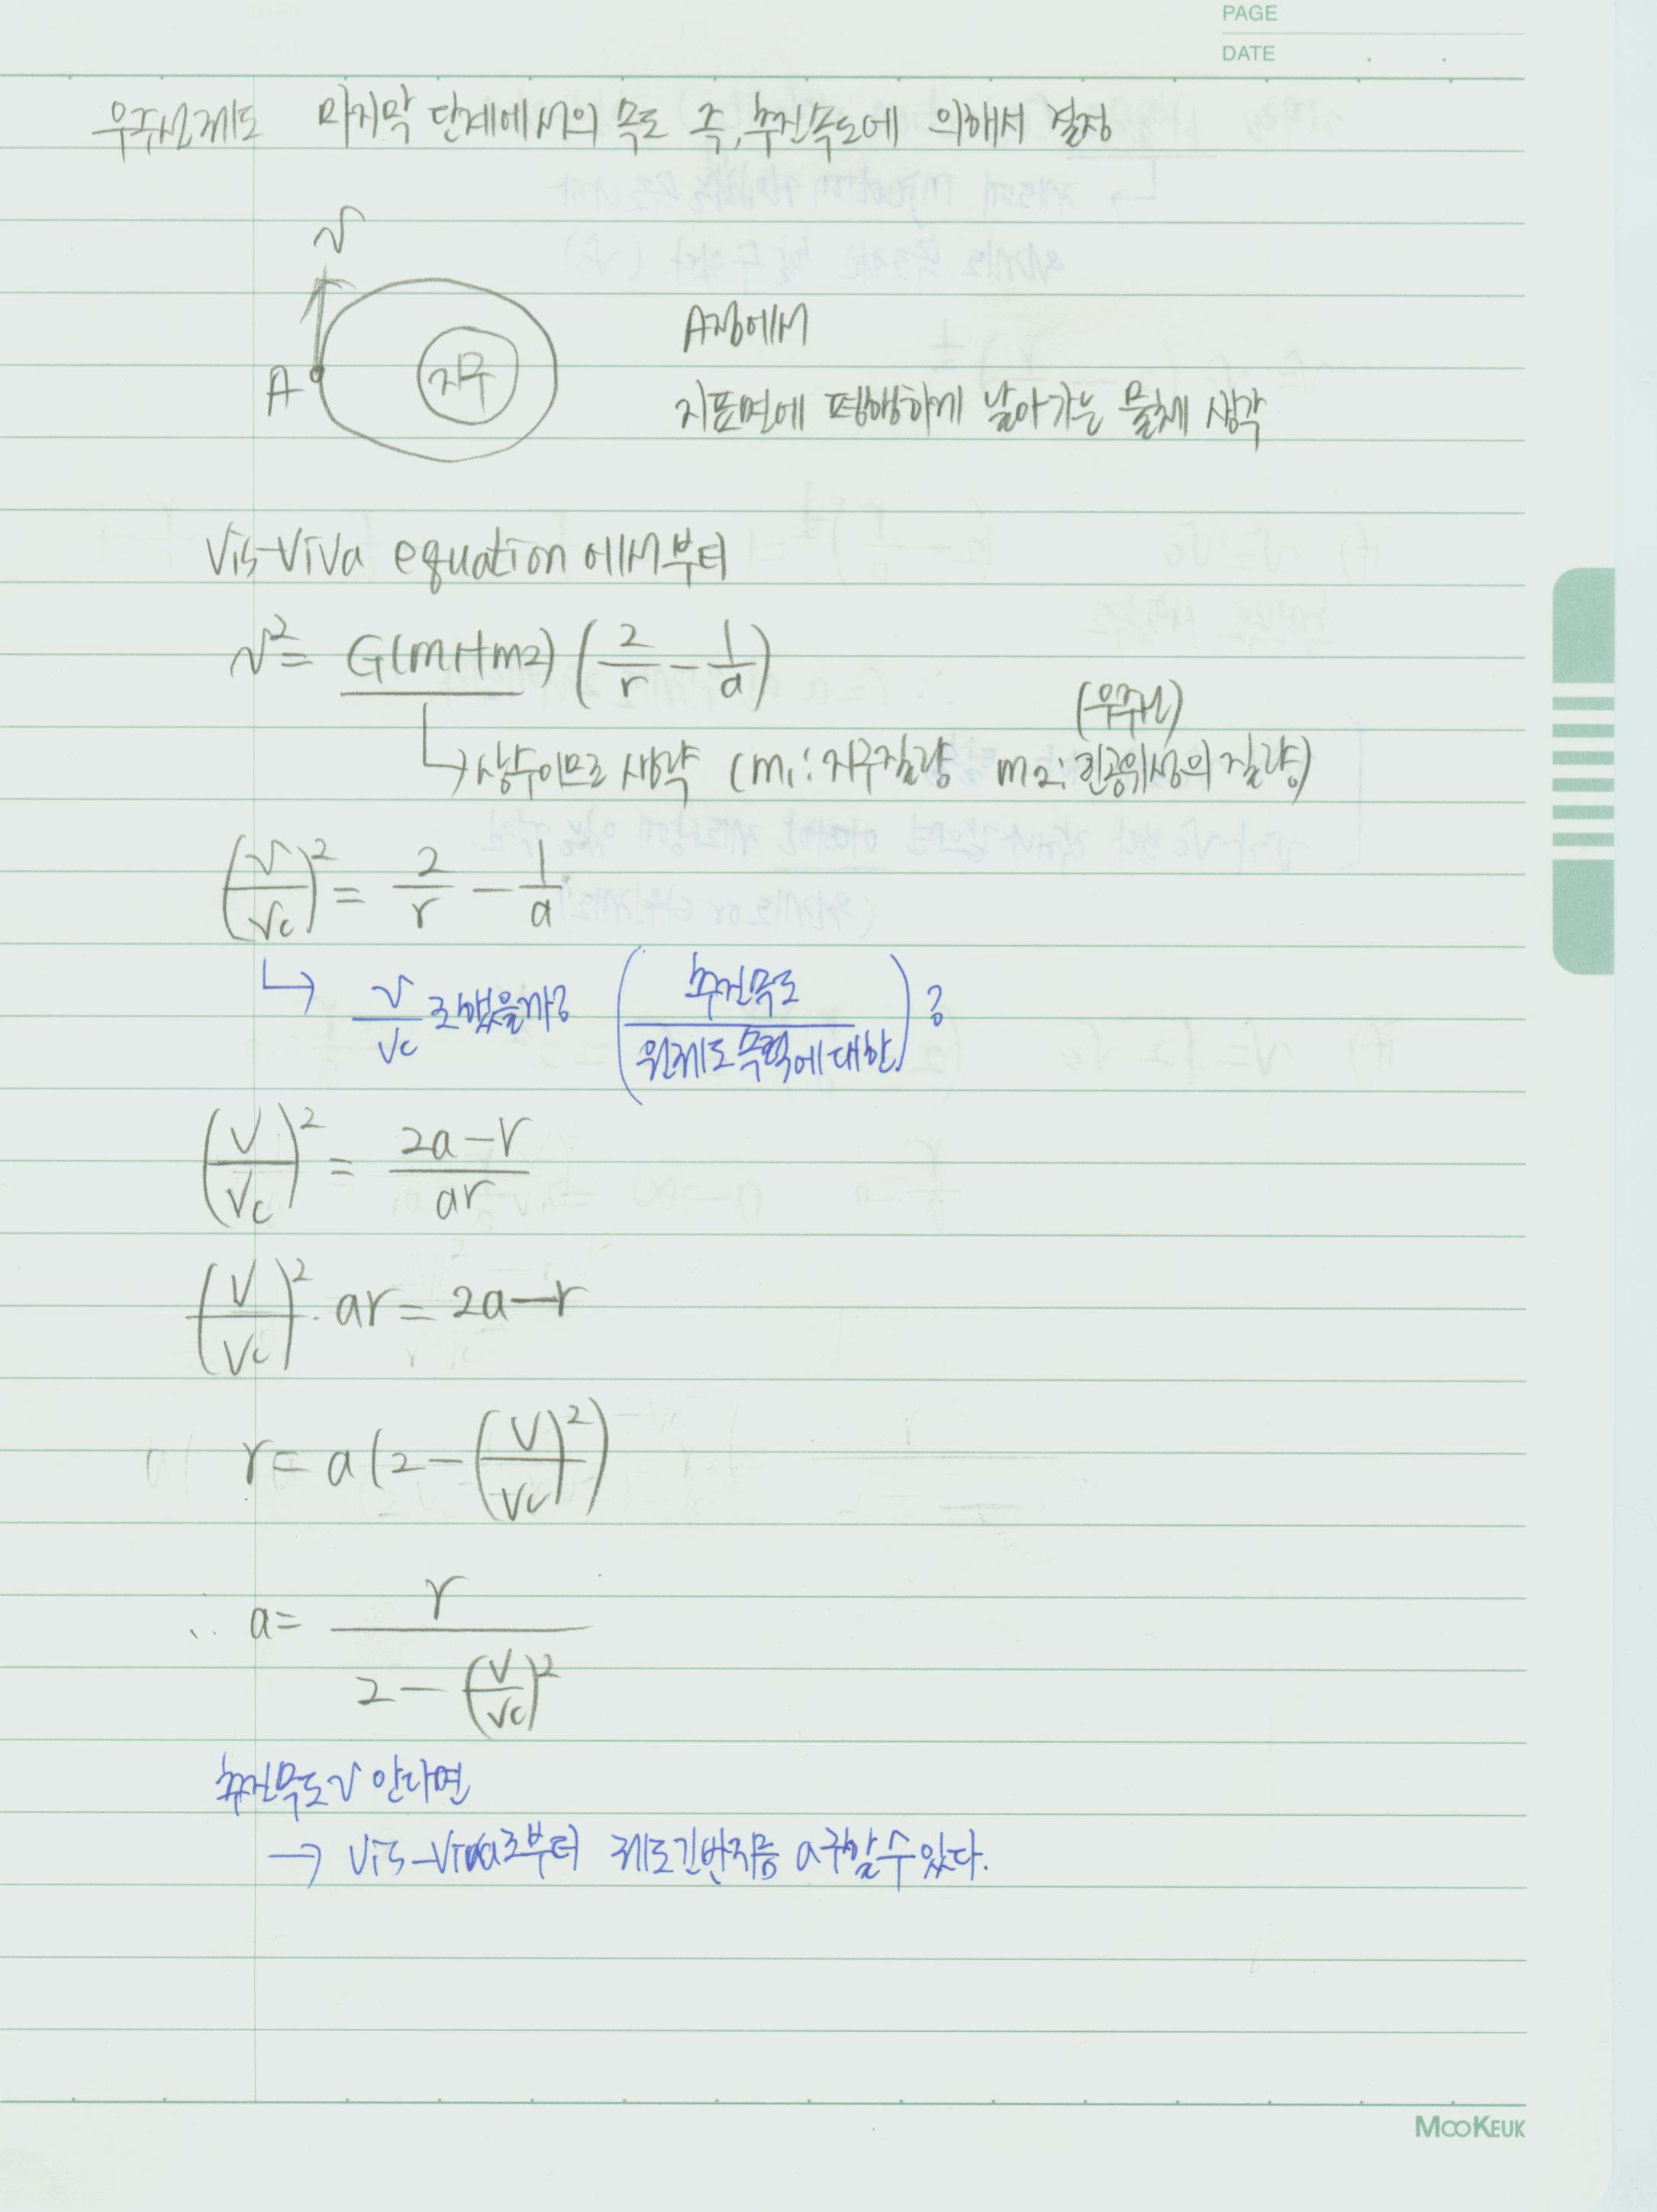 PAGE
DATE
우주선궤도 마지막 단계에서의 속도 즉, 추진속도에 의해서 결정
v
A 지구
A점에서
지표면에 평행하게 날아가는 물체 생각
Vis-Viva equation에서부터
v² = G(m1+m2) (2/r - 1/a)
(우주선)
↳ 상수이므로 생략 (m1: 지구질량 m2: 인공위성의 질량)
(v/vc)² = 2/r - 1/a
↳ v/vc 로했을까? (추진속도/원궤도 속력에 대한)?
(V/Vc)² = (2a-r)/ar
(V/Vc)² · ar = 2a-r
r = a(2-(V/Vc)²)
∴ a = r/(2-(V/Vc)²)
추진속도 v 안다면
→ Vis-Viva로부터 궤도긴반지름 a구할수있다.
MOOKEUK